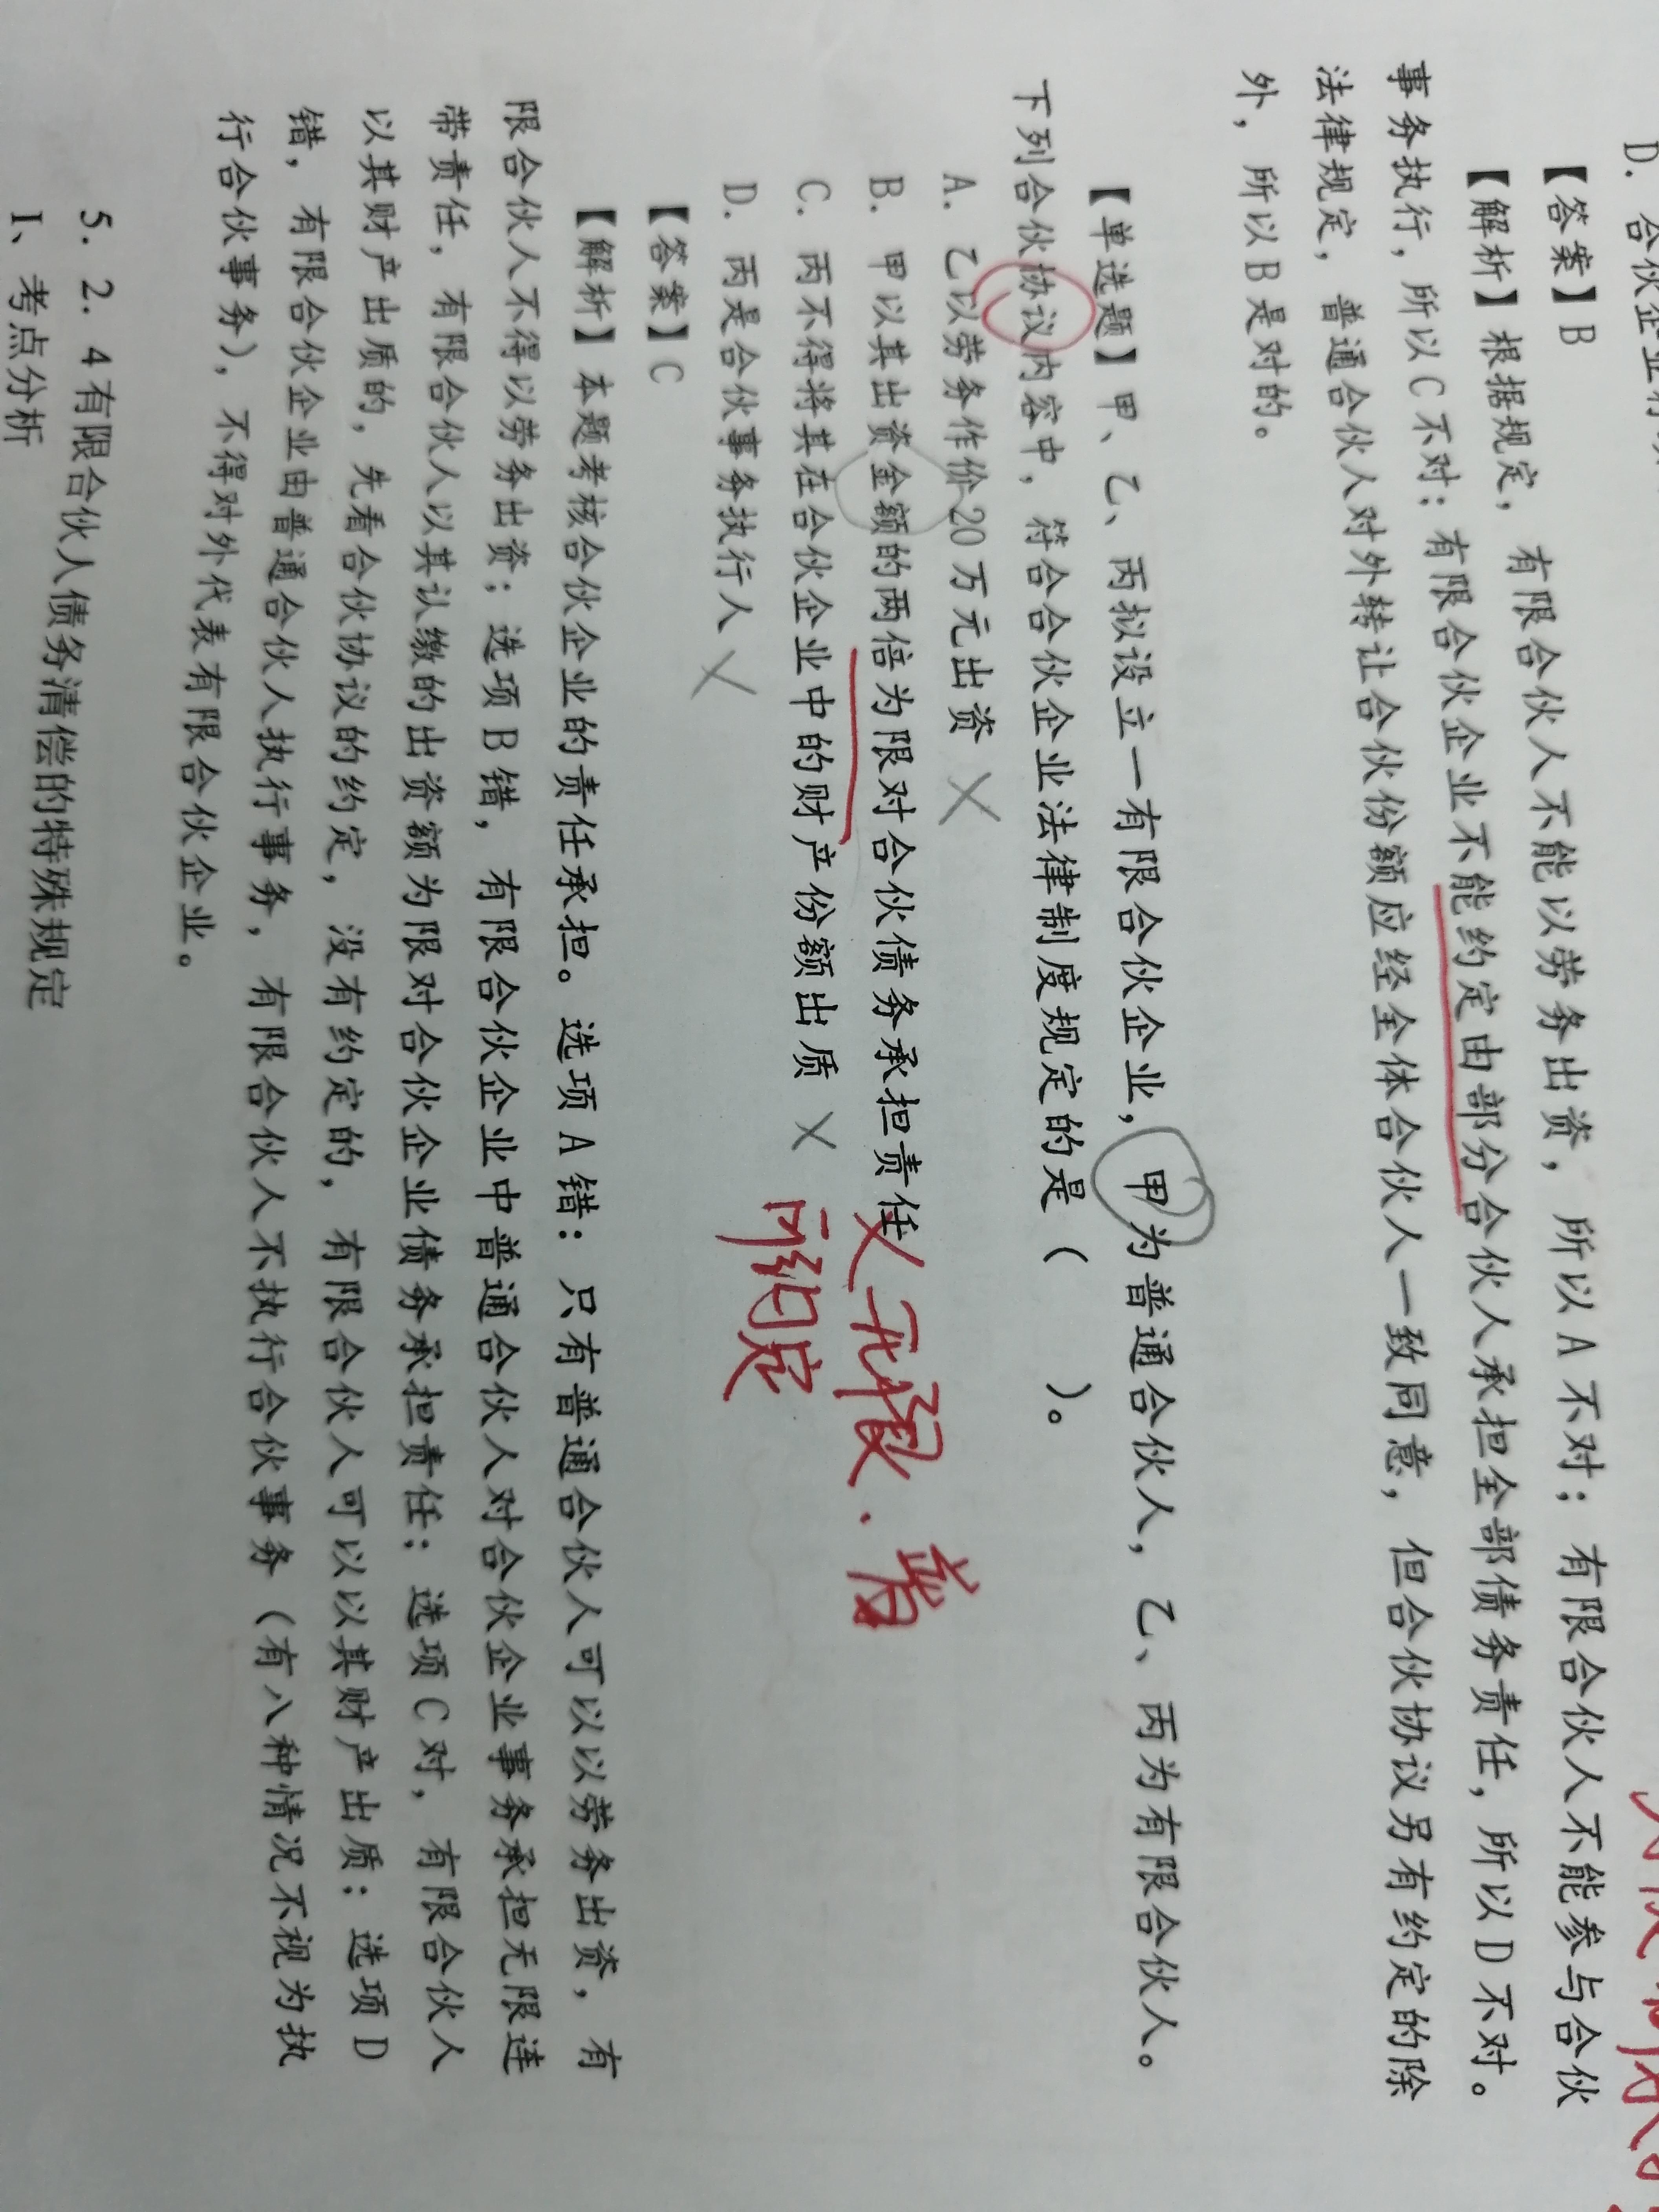 D. 合伙企业
【答案】B
【解析】根据规定，有限合伙人不能以劳务出资，所以 A 不对；有限合伙人不能参与合伙
事务执行，所以 C 不对；有限合伙企业不能约定由部分合伙人承担全部债务责任，所以 D 不对。
法律规定，普通合伙人对外转让合伙份额应经全体合伙人一致同意，但合伙协议另有约定的除
外，所以 B 是对的。
【单选题】甲、乙、丙拟设立一有限合伙企业，甲为普通合伙人，乙、丙为有限合伙人。
下列合伙协议内容中，符合合伙企业法律制度规定的是（ ）。
A. 乙以劳务作价 20 万元出资 ×
B. 甲以其出资金额的两倍为限对合伙债务承担责任 × 无限. 普
C. 丙不得将其在合伙企业中的财产份额出质 × 可约定
D. 丙是合伙事务执行人 ×
【答案】C
【解析】本题考核合伙企业的责任承担。选项 A 错：只有普通合伙人可以以劳务出资，有
限合伙人不得以劳务出资；选项 B 错，有限合伙企业中普通合伙人对合伙企业事务承担无限连
带责任，有限合伙人以其认缴的出资额为限对合伙企业债务承担责任；选项 C 对，有限合伙人
以其财产出质的，先看合伙协议的约定，没有约定的，有限合伙人可以以其财产出质；选项 D
错，有限合伙企业由普通合伙人执行事务，有限合伙人不执行合伙事务（有八种情况不视为执
行合伙事务），不得对外代表有限合伙企业。
5. 2. 4 有限合伙人债务清偿的特殊规定
1、考点分析